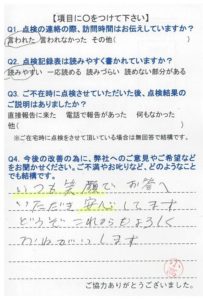 【項目に〇をつけて下さい】
Q1. 点検の連絡の際、訪問時間はお伝えしていますか?
言われた 言われなかった その他( )
Q2. 点検記録表は読みやすく書かれていますか?
読みやすい 一応読める 読みづらい 読めない部分がある
Q3. ご不在時に点検させていただいた後、点検結果の
ご説明はありましたか?
直接報告に来た 電話で報告があった 何もなかった
他( )
※ご在宅時に点検をさせて頂いている場合は無回答で結構です。
Q4. 今後の改善の為に、弊社へのご意見やご希望など
をお聞かせください。ご不満やお叱りなど、どのようなこと
でも結構です。
いつも笑顔でお答へ
いただき安心してます
どうぞこれからもよろしく
おねがいします
ご協力ありがとうございました。